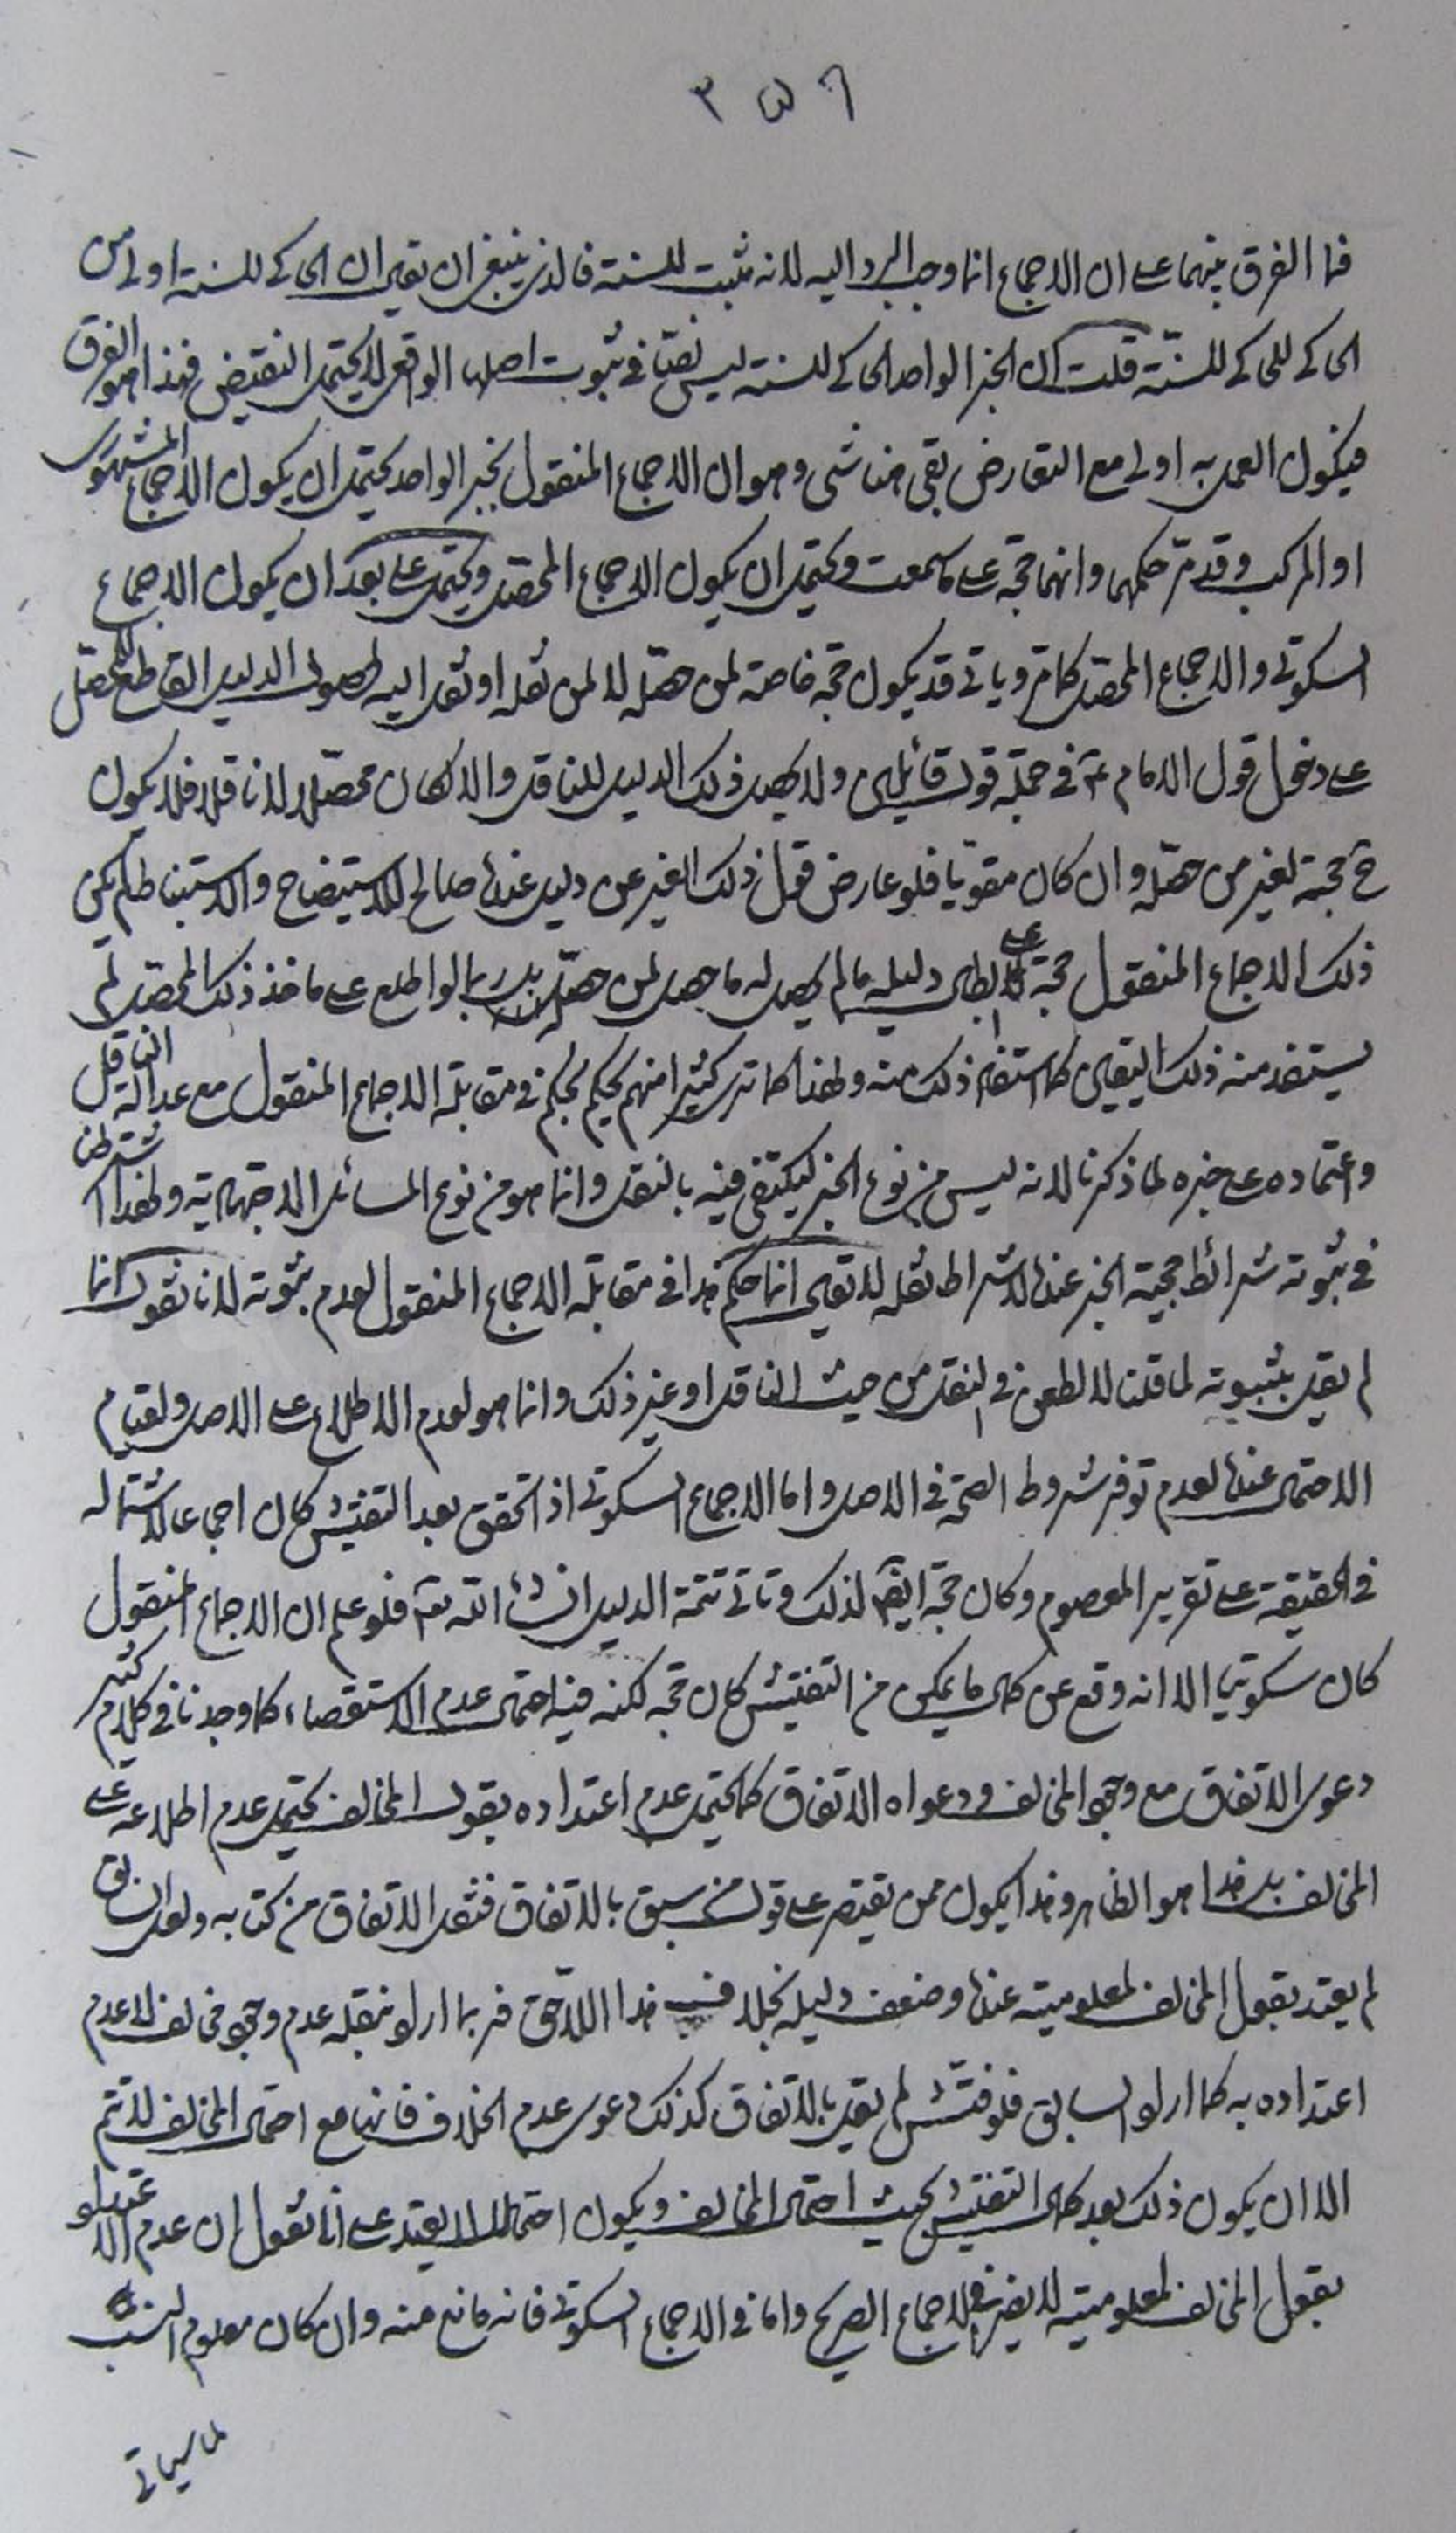 ٣٥٦
فما الفرق بينهما على ان الاجماع انما وجب الرد اليه لانه مثبت للسنة فالذي ينبغي ان يقال ان الحاكي للسنة اولى من
الحاكي للحاكي للسنّة قلت ان الخبر الواحد الحاكي للسنة ليس نصّا في ثبوت اصلها الواقعي لا يحتمل النقيض فهذا هو الفرق
فيكون العمل به اولى مع التعارض بقي هنا شئ وهو ان الاجماع المنقول بخبر الواحد يحتمل ان يكون الاجماع المشهوري
او المركب وقد مرّ حكمهما وانهما حجّة على ما سمعت ويحتمل ان يكون الاجماع المحصّل ويحتمل على بعد ان يكون الاجماع
السكوتي والاجماع المحصّل كما مرّ وياتي قد يكون حجّة خاصة لمن حصّله لا لمن نقله او نقل اليه لحصول الدليل القاطع للمحصّل
على دخول قول الامام عم في جملة قول قائلين ولا يحصل ذلك الدليل للناقل والا لكان محصّلا لا ناقلا فلا يكون
ح حجة لغير من حصّله وان كان مقوّيا فلو عارض قول ذلك الغير عن دليل عنده صالح للاستيضاح والاستنباط لم يكن
ذلك الاجماع المنقول حجة على ابطال دليله ما لم يحصل له ما حصل لمن حصّله بل ربما لو اطلع على ماخذ ذلك المحصّل لم
يستفد منه ذلك اليقين كما استفاد ذلك منه ولهذا كما ترى كثيرا منهم يحكم بحكم في مقابلة الاجماع المنقول مع عدالة الناقل
واعتماده على خبره لما ذكرنا لانه ليس من نوع الخبر ليكتفى فيه بالنقل وانما هو من نوع المسائل الاجتهادية ولهذا اشترطنا
في ثبوته شرائط حجية الخبر عندنا لاشتراط نقله لا يقال انما حكم هذا في مقابلة الاجماع المنقول لعدم ثبوته لانا نقول انما
لم يقل بثبوته لما قلنا لا لطعن في النقل من حيث الناقل او غير ذلك وانما هو لعدم الاطلاع على الاصل ولقيام
الاحتمال عنده لعدم توفر شروط الصحّة في الاصل واما الاجماع السكوتي اذا تحقق بعد التفتيش كان اجماعا لاشتماله
في الحقيقة على تقرير المعصوم وكان حجّة ايضا لذلك وتاتي تتمّة الدليل انشاء الله تعالى فلو علم ان الاجماع المنقول
كان سكوتيا الا انه وقع عن كمال ما يمكن من التفتيش كان حجّة لكنه فيه احتمال عدم الاستقصاء كما وجدنا في كلام كثير
دعوى الاتفاق مع وجود المخالف ودعواه الاتفاق كما يحتمل عدم اعتداده بقول المخالف يحتمل عدم اطلاعه على
المخالف بل هذا هو الظاهر وهذا يكون ممن يقتصر على قول من سبق بالاتفاق فنقل الاتفاق من كتابه ولعل السابق
لم يعتد بقول المخالف لمعلوميته عنده وضعف دليله بخلاف هذا اللاحق فربما اراد بنقله عدم وجود مخالف لا عدم
اعتداده به كما اراد السابق فلو فتّش لم يقل بالاتفاق كذلك دعوى عدم الخلاف فانها مع احتمال المخالف لا تتم
الا ان يكون ذلك بعد كمال التفتيش بحيث احتمال المخالف ويكون احتمالا لا يعتد على انا نقول ان عدم الاعتداد
بقول المخالف لمعلوميته لا يضر في الاجماع الصريح واما في الاجماع السكوتي فانه مانع منه وان كان معلوم النسب
لما سياتي